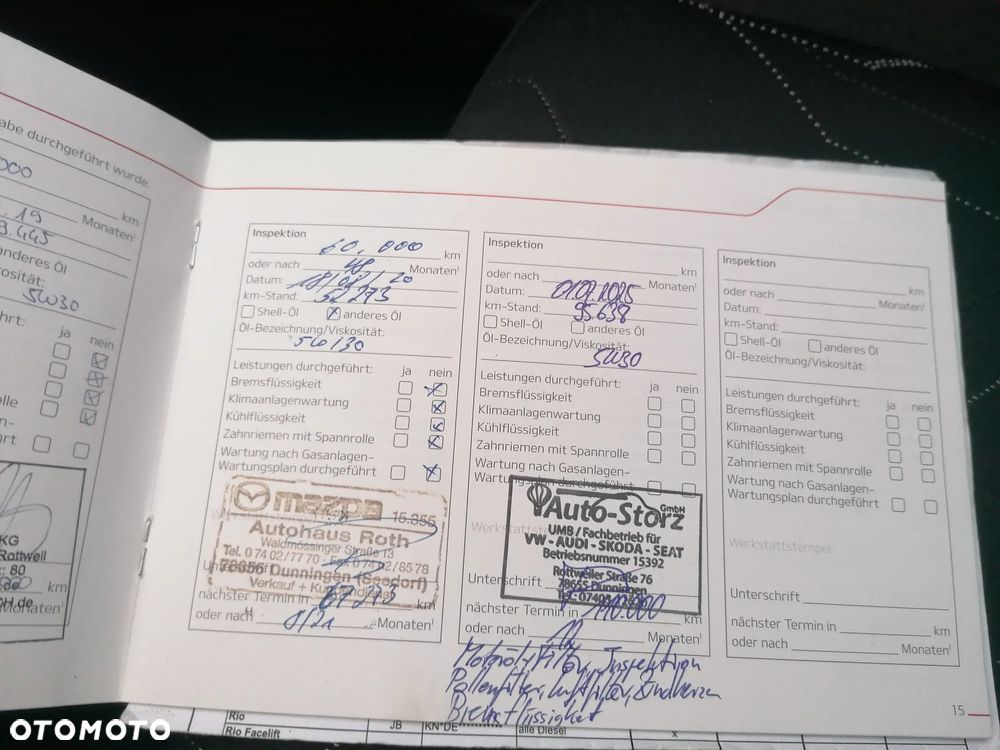 abe durchgeführt wurde.
000
km
19
Monaten¹
3.445
anderes Öl
kosität:
5W30
hrt:
ja nein
olle
n-
hrt
KG
Rottweil
: 80
.de
CH.de
km
Monaten¹
Inspektion
60.000 km
oder nach 48 Monaten¹
Datum: 18/08/20
km-Stand: 52273
Shell-Öl anderes Öl
Öl-Bezeichnung/Viskosität:
5W/30
Leistungen durchgeführt: ja nein
Bremsflüssigkeit
Klimaanlagenwartung
Kühlflüssigkeit
Zahnriemen mit Spannrolle
Wartung nach Gasanlagen-
Wartungsplan durchgeführt
mazda 15.355
Autohaus Roth
Waldmössinger Straße 13
Tel. 0 74 02/77 70 Fax 0 74 02/85 78
78655 Dunningen (Seedorf)
Verkauf + Kundendienst
nächster Termin in 67273 km
oder nach 8/21 Monaten¹
Inspektion
km
oder nach Monaten¹
Datum: 01.07.2025
km-Stand: 95.638
Shell-Öl anderes Öl
Öl-Bezeichnung/Viskosität:
5W30
Leistungen durchgeführt: ja nein
Bremsflüssigkeit
Klimaanlagenwartung
Kühlflüssigkeit
Zahnriemen mit Spannrolle
Wartung nach Gasanlagen-
Wartungsplan durchgeführt
Auto-Storz GmbH
UMB / Fachbetrieb für
VW - AUDI - SKODA - SEAT
Betriebsnummer 15392
Rottweiler Straße 76
78655 Dunningen
Unterschrift
nächster Termin in 110.000 km
oder nach 12 Monaten¹
Motoröl, Filter, Inspektion
Pollenfilter, Luftfilter, Zündkerzen
Bremsflüssigkeit
Inspektion
km
oder nach Monaten¹
Datum:
km-Stand:
Shell-Öl anderes Öl
Öl-Bezeichnung/Viskosität:
Leistungen durchgeführt: ja nein
Bremsflüssigkeit
Klimaanlagenwartung
Kühlflüssigkeit
Zahnriemen mit Spannrolle
Wartung nach Gasanlagen-
Wartungsplan durchgeführt
Werkstattstempel
Unterschrift
nächster Termin in km
oder nach Monaten¹
15
Rio
Rio Facelift JB KN*DE alle Diesel x
OTOMOTO